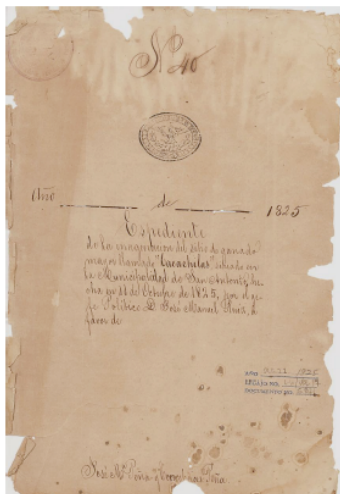 No 40
Año de 1825
Espediente
de la imaginacion del sitio de ganado
mayor llamado "Cacachilas" situado en
la Municipalidad de San Antonio, he-
cha en 11 de Octubre de 1825, por el je-
fe Politico D. José Manuel Ruiz, a
favor de
AÑO 1825
LEGAJO
DOCUMENTO
José Ma. Peña y Peña